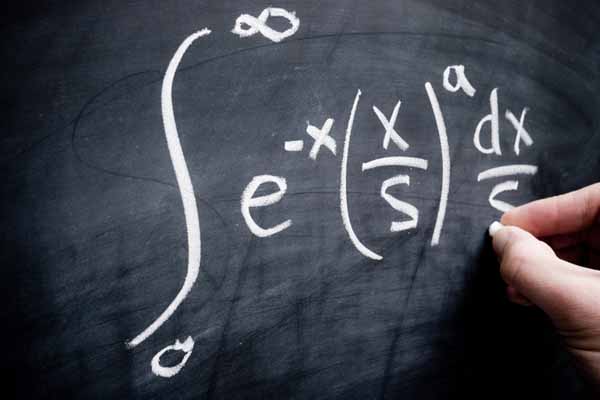 ∫₀^∞ e^{-x} (x/s)^a dx/s